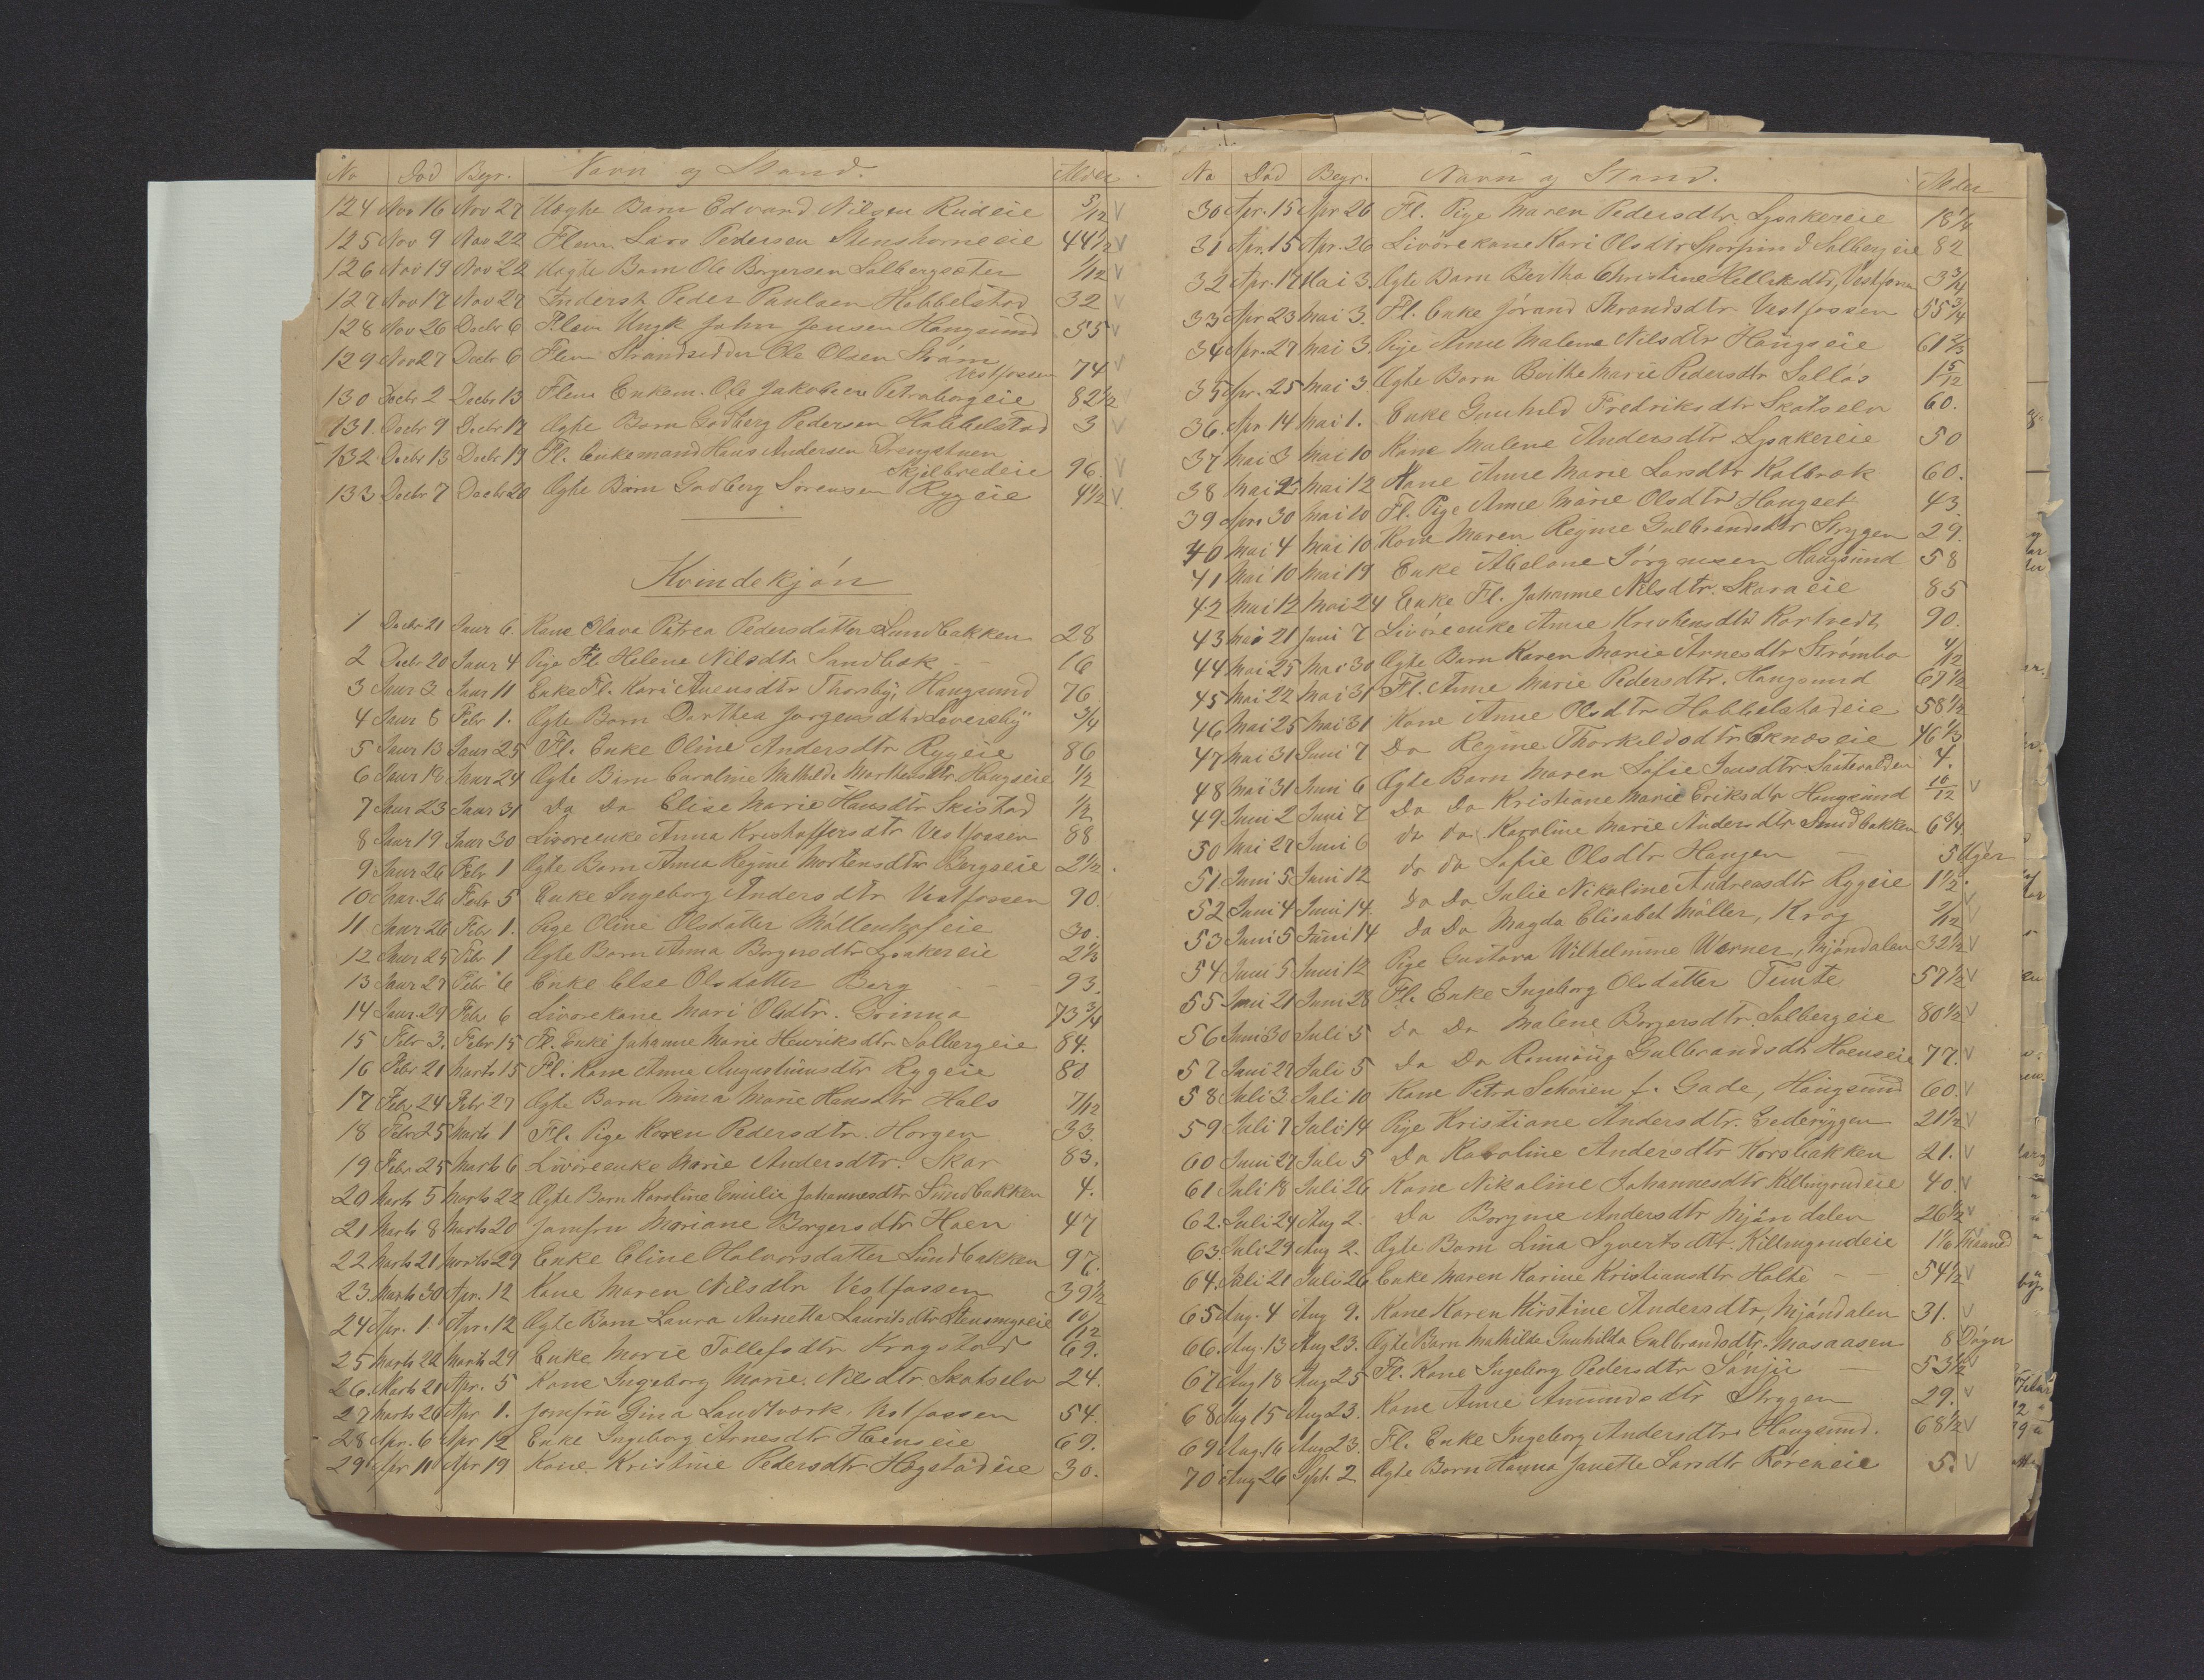 No Död Begr. Navn og Stand. Alder
124 Nov 16 Nov 27 Uægte Barn Edvard Nilsen Rudeie 5/12 V
125 Nov 9 Nov 22 Flem Lars Pedersen Stenshorneeie 44 1/2 V
126 Nov 19 Nov 22 Uægte Barn Ole Borgersen Solbergsæter 1/12 V
127 Nov 17 Nov 27 Inderst Peder Paulsen Habbelstad 32 V
128 Nov 26 Decbr 6 Flem Ungk John Jensen Hougsund 55 V
129 Nov 27 Decbr 6 Flem Strandsidder Ole Olsen Ström
Vestfossen 74 V
130 Decbr 2 Decbr 13 Flem Enkem. Ole Jakobsen Petraborgeie 82 1/2 V
131. Decbr 9 Decbr 17 Ægte Barn Godberg Pedersen Habbelstad 3 V
132 Decbr 13 Decbr 19 Fl. Enkemand Hans Andersen Drengstuen
Skjelbredeie 96 V
133 Decbr 7 Decbr 20 Ægte Barn Godberg Sörensen Rygeie 4 1/2 V
Kvindekjön
1 Decbr 21 Janr 6. Kone Olava Petrea Pedersdatter Sundbakken 28
2 Decbr 20 Janr 4 Pige Fl. Helene Nilsdtr Sandbæk 16
3 Janr 3 Janr 11 Enke Fl. Kari Auensdtr Thorsby, Hougsund 76
4 Janr 8 Febr 1. Ægte Barn Dorthea Jorgensdtr Loversby 3/4
5 Janr 13 Janr 25 Fl. Enke Oline Andersdtr Rygeie 86
6 Janr 18 Janr 24 Ægte Barn Caroline Mathilde Mathisdtr Hougseie 1/2
7 Janr 23 Janr 31 Do Do Elise Marie Hansdtr Skistad 1/2
8 Janr 19 Janr 30 Livöreenke Anna Kristoffersdtr Vestfossen 88
9 Janr 26 Febr 1 Ægte Barn Anna Regine Mortensdtr Bergseie 2 1/2
10 Janr 26 Febr 5 Enke Ingeborg Andersdtr Vestfossen 90.
11 Janr 26 Febr 1. Pige Oline Olsdatter Möllenhofeie 30.
12 Janr 25 Febr 1 Ægte Barn Anna Borgersdtr Lysakereie 2 1/3
13 Janr 27 Febr 6 Enke Else Olsdatter Berg 93.
14 Janr 29 Febr 6 Livörekone Mari Olsdtr. Grinna 73 3/4
15 Febr 3. Febr 15 Fl. Enke Johanne Marie Henriksdtr Solbergeie 84.
16 Febr 21 Marts 15 Fl. Kone Anne Augustinusdtr Rygeie 80
17 Febr 24 Febr 27 Ægte Barn Mina Marie Hansdtr Hals 7/12
18 Febr 25 Marts 1 Fl. Pige Karen Pedersdtr. Horgen 33
19 Febr 25 Marts 6 Livöreenke Marie Andersdtr. Skar 83.
20 Marts 5 Marts 22 Ægte Barn Karoline Emilie Johannesdtr Sundbakken 4.
21 Marts 8 Marts 20 Jomfru Mariane Borgersdtr Hoen 47
22 Marts 21 Marts 29 Enke Eline Halvorsdatter Sundbakken 97.
23. Marts 30 Apr. 12 Kone Maren Nilsdtr Vestfossen 39 1/2
24 Apr. 1. Apr. 12 Ægte Barn Laura Annetta Lauritsdtr Stensmyreie 10/12
25 Marts 22 Marts 29 Enke Marie Tollefsdtr Kragstad 69.
26. Marts 21 Apr. 5 Kone Ingeborg Marie Nilsdtr Skotselv 24.
27 Marts 26 Apr 1. Jomfru Gina Landtværk. Vestfossen 54.
28 Apr. 6 Apr 12 Enke Ingeborg Arnesdtr Hoenseie 69.
29 Apr 11 Apr 19 Kone Kristine Pedersdtr Hogstadeie 30.
No Död Begr. Navn og Stand. Alder
30 Apr. 15 Apr 26 Fl. Pige Maren Pedersdtr Lysakereie 18 1/4
31 Apr. 15 Apr. 26 Livörekone Kari Olsdtr Solbergeie 82
32 Apr. 17 Mai 3. Ægte Barn Bertha Christine Helleksdtr, Vestfossen 3 3/4
33 Apr 23 Mai 3. Fl. Enke Jörand Throndsdtr Vestfossen 55 3/4
34 Apr. 27 Mai 3. Pige Anne Malene Nilsdtr Hougseie 61 2/3
35 Apr. 25 Mai 3 Ægte Barn Berthe Marie Pedersdtr Sollös 1 5/12
36. Apr 14 Mai 1. Enke Gunhild Fredriksdtr Skotselv 60.
37 Mai 3 Mai 10 Kone Malene Andersdtr Lysakereie 50
38 Mai 2 Mai 12 Kone Anne Marie Larsdtr Kolbræk 60.
39 Apr. 30 Mai 10 Fl. Pige Anne Marie Olsdtr Houget 43
40 Mai 4 Mai 10 Kone Maren Regine Gulbrandsdtr Strygen 29.
41 Mai 10 Mai 19 Enke Abelone Jörgensen Hougsund 58
42 Mai 12 Mai 24 Enke Fl. Johanne Nilsdtr. Skaraeie 85
43 Mai 21 Juni 7 Livöreenke Anne Kristensdtr Kortvedt 90.
44 Mai 25 Mai 30 Ægte Barn Karen Marie Arnesdtr Strömbo 4/12
45 Mai 22 Mai 31 Fl. Anne Marie Pedersdtr. Hougsund 67 1/2
46 Mai 25 Mai 31 Kone Anne Olsdtr Habbelstadeie 58 1/2
47 Mai 31 Juni 7 Do Regine Thorkildsdtr Eknæseie 46 1/3
48 Mai 31 Juni 6 Ægte Barn Maren Sofie Jensdtr 4.
49 Juni 2 Juni 7 Do Do Kristiane Marie Eriksdtr Hougsund 10/12 V
50 Mai 27 Juni 6 do do Karoline Marie Andersdtr Sundbakken 6 3/4
51 Juni 5 Juni 12 do do Sofie Olsdtr Haugen 5 Uger
52 Juni 4 Juni 14. Do Do Julie Nikoline Andreasdtr Rygeie 1 1/2. V
53 Juni 5 Juni 14 Do Do Magda Elisabet Möller, Krog 2/12 V
54 Juni 5 Juni 12 Pige Gustava Wilhelmine Werner, Mjöndalen 32 1/2 V
55 Juni 21 Juni 28 Fl. Enke Ingeborg Olsdatter Temte 57 1/2 V
56 Juni 30 Juli 5 Do Do Malene Borgersdtr Solbergeie 80 1/2 V
57 Juni 27 Juli 5 Do Do Rønnaug Gulbrandsdtr Hoenseie 77. V
58 Juli 3 Juli 10 Kone Petra Schöien f. Gade, Hougsund 60. V
59 Juli 7 Juli 14 Pige Kristiane Andersdtr. Gederyggen 21 1/2 V
60 Juni 27 Juli 5 Do Karoline Andersdtr Korsbakken 21. V
61 Juli 18 Juli 26 Kone Nikoline Johannesdtr Killingrudeie 40. V
62. Juli 24 Aug 2. Do Borgine Andersdtr Mjöndalen 26 1/2 V
63 Juli 29 Aug 2. Ægte Barn Lina Syvertsdtr. Killingrudeie 1 1/6 Maaned
64. Juli 21 Juli 26 Enke Maren Karine Kristiansdtr Holte 54 1/2 V
65 Aug. 4 Aug 9. Kone Karen Kirstine Andersdtr, Mjöndalen 31. V
66. Aug. 13 Aug 23. Ægte Barn Mathilde Gunhilda Gulbrandsdtr. Mosaasen 8 Dögn
67 Aug 18 Aug 25 Fl. Kone Ingeborg Pedersdtr Sönju 53 1/2 V
68 Aug 15 Aug 23. Kone Anne Amundsdtr Strygen 29. V
69 Aug. 16 Aug 23. Fl. Enke Ingeborg Andersdtr Hougsund. 68 1/2 V
70 Aug 26 Sept. 2 Ægte Barn Hanna Janette Larsdtr Röreneie 5. V